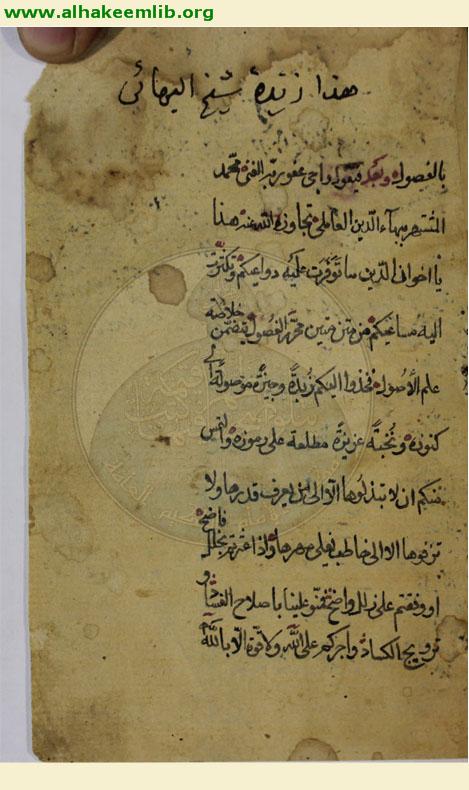 www.alhakeemlib.org
هذا زبدة شيخ البهائي
بالفصول وبعد فيقول راجى عفو ربه الغنى محمد
المشتهر ببهاء الدين العاملى تجاوز الله عنه هذا
يا اخوان الدين ما توفرت عليه دواعيكم وتكثرت
اليه مساعيكم من متن متين محرر الفصول يتضمن خلاصة
علم الاصول فخذوا اليكم زبدة وجيزة موصلة الى
كنوزه ونخبة عزيزة مطلعة على رموزه والتمس
منكم ان لا تبذلوها الا الى من يعرف قدرها ولا
تزفوها الا الى خاطب يغلى مهرها واذا عثرتم بخلل فاضح
او وقفتم على زلل واضح فمنوا علينا باصلاح الفساد و
ترويج الكساد واجركم على الله ولا قوة الا بالله